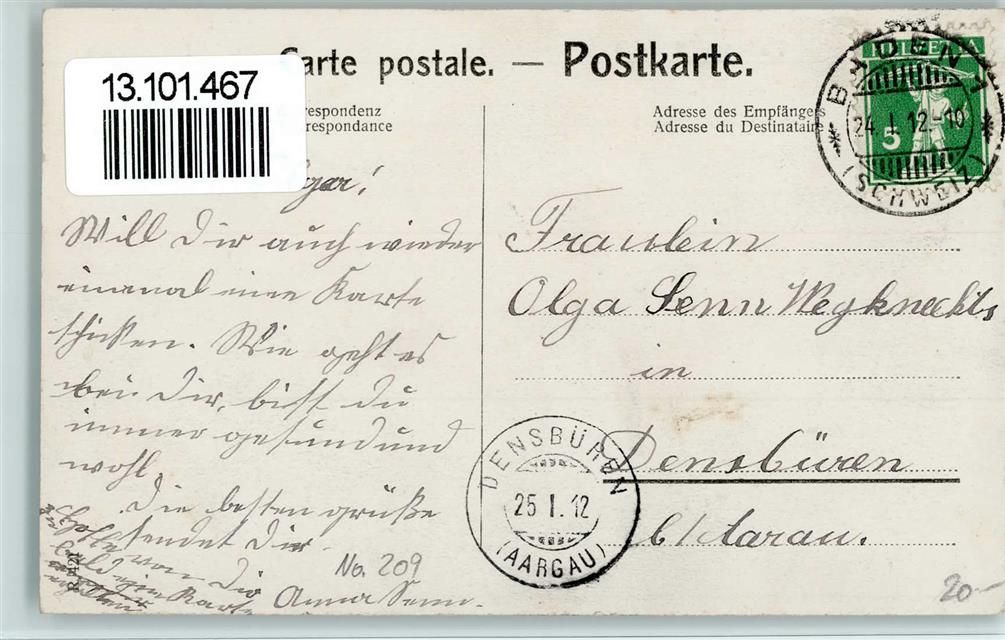 13.101.467
Carte postale. — Postkarte.
respondenz
respondance
Adresse des Empfängers
Adresse du Destinataire
HELVETIA
5
BADEN 1
24. I. 12-10
(SCHWEIZ)
Will Dir auch wieder
einmal eine Karte
schicken. Wie geht es
bei Dir, bist du
immer gesund und
wohl.
Die besten grüße
sendet Dir
Anna Senn.
Fraulein
Olga Senn Wegknechts
in
Densbüren
b/Aarau.
DENSBÜREN
25 I. 12
(AARGAU)
No. 209
20-